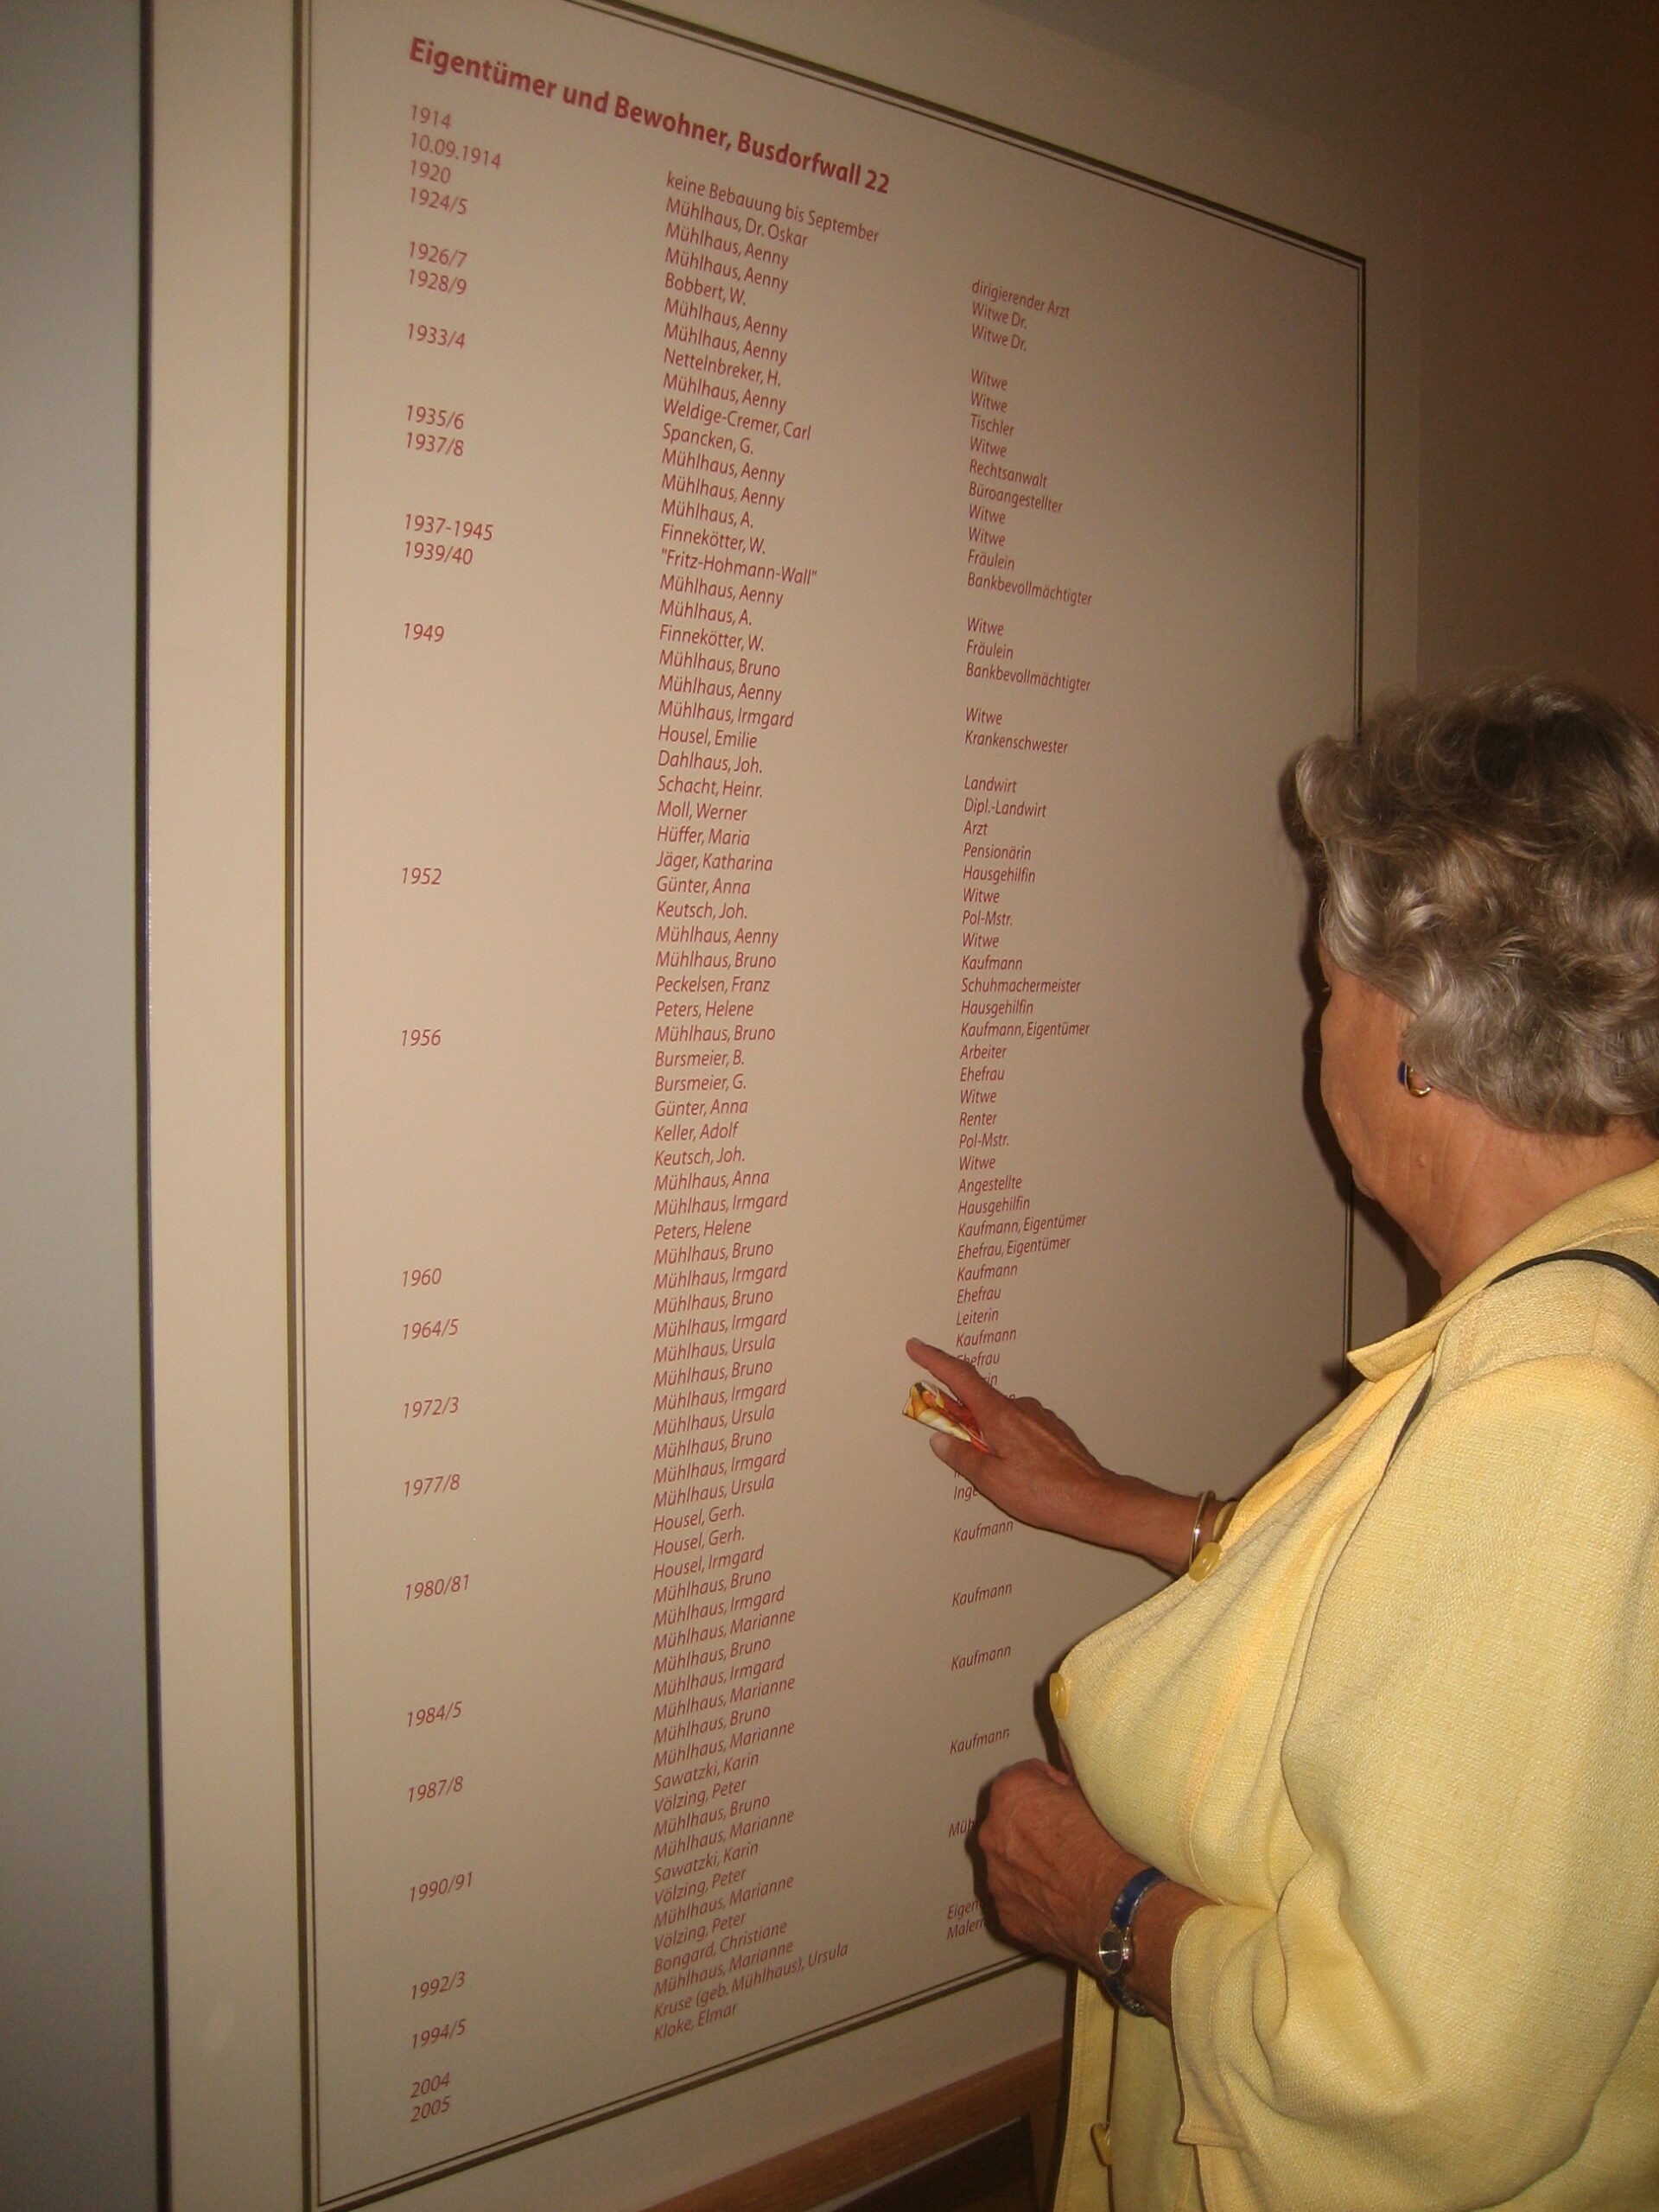 Eigentümer und Bewohner, Busdorfwall 22
1914 keine Bebauung bis September
10.09.1914 Mühlhaus, Dr. Oskar dirigierender Arzt
1920 Mühlhaus, Aenny Witwe Dr.
1924/5 Mühlhaus, Aenny Witwe Dr.
Bobbert, W.
1926/7 Mühlhaus, Aenny Witwe
1928/9 Mühlhaus, Aenny Witwe
Nettelnbreker, H. Tischler
1933/4 Mühlhaus, Aenny Witwe
Weldige-Cremer, Carl Rechtsanwalt
Spancken, G. Büroangestellter
1935/6 Mühlhaus, Aenny Witwe
1937/8 Mühlhaus, Aenny Witwe
Mühlhaus, A. Fräulein
Finnekötter, W. Bankbevollmächtigter
1937-1945 "Fritz-Hohmann-Wall"
1939/40 Mühlhaus, Aenny Witwe
Mühlhaus, A. Fräulein
Finnekötter, W. Bankbevollmächtigter
1949 Mühlhaus, Bruno
Mühlhaus, Aenny Witwe
Mühlhaus, Irmgard Krankenschwester
Housel, Emilie
Dahlhaus, Joh. Landwirt
Schacht, Heinr. Dipl.-Landwirt
Moll, Werner Arzt
Hüffer, Maria Pensionärin
Jäger, Katharina Hausgehilfin
1952 Günter, Anna Witwe
Keutsch, Joh. Pol-Mstr.
Mühlhaus, Aenny Witwe
Mühlhaus, Bruno Kaufmann
Peckelsen, Franz Schuhmachermeister
Peters, Helene Hausgehilfin
1956 Mühlhaus, Bruno Kaufmann, Eigentümer
Bursmeier, B. Arbeiter
Bursmeier, G. Ehefrau
Günter, Anna Witwe
Keller, Adolf Renter
Keutsch, Joh. Pol-Mstr.
Mühlhaus, Anna Witwe
Mühlhaus, Irmgard Angestellte
Peters, Helene Hausgehilfin
1960 Mühlhaus, Bruno Kaufmann, Eigentümer
Mühlhaus, Irmgard Ehefrau, Eigentümer
1964/5 Mühlhaus, Bruno Kaufmann
Mühlhaus, Irmgard Ehefrau
Mühlhaus, Ursula Leiterin
1972/3 Mühlhaus, Bruno Kaufmann
Mühlhaus, Irmgard Ehefrau
Mühlhaus, Ursula
1977/8 Mühlhaus, Bruno
Mühlhaus, Irmgard
Mühlhaus, Ursula
Housel, Gerh.
1980/81 Housel, Gerh.
Housel, Irmgard
Mühlhaus, Bruno Kaufmann
Mühlhaus, Irmgard
Mühlhaus, Marianne
1984/5 Mühlhaus, Bruno Kaufmann
Mühlhaus, Irmgard
Mühlhaus, Marianne
1987/8 Mühlhaus, Bruno Kaufmann
Mühlhaus, Marianne
Sawatzki, Karin
Völzing, Peter
1990/91 Mühlhaus, Bruno Kaufmann
Mühlhaus, Marianne
Sawatzki, Karin
Völzing, Peter
1992/3 Mühlhaus, Marianne
Völzing, Peter
1994/5 Bongard, Christiane
Mühlhaus, Marianne
2004 Kruse (geb. Mühlhaus), Ursula
2005 Kloke, Elmar